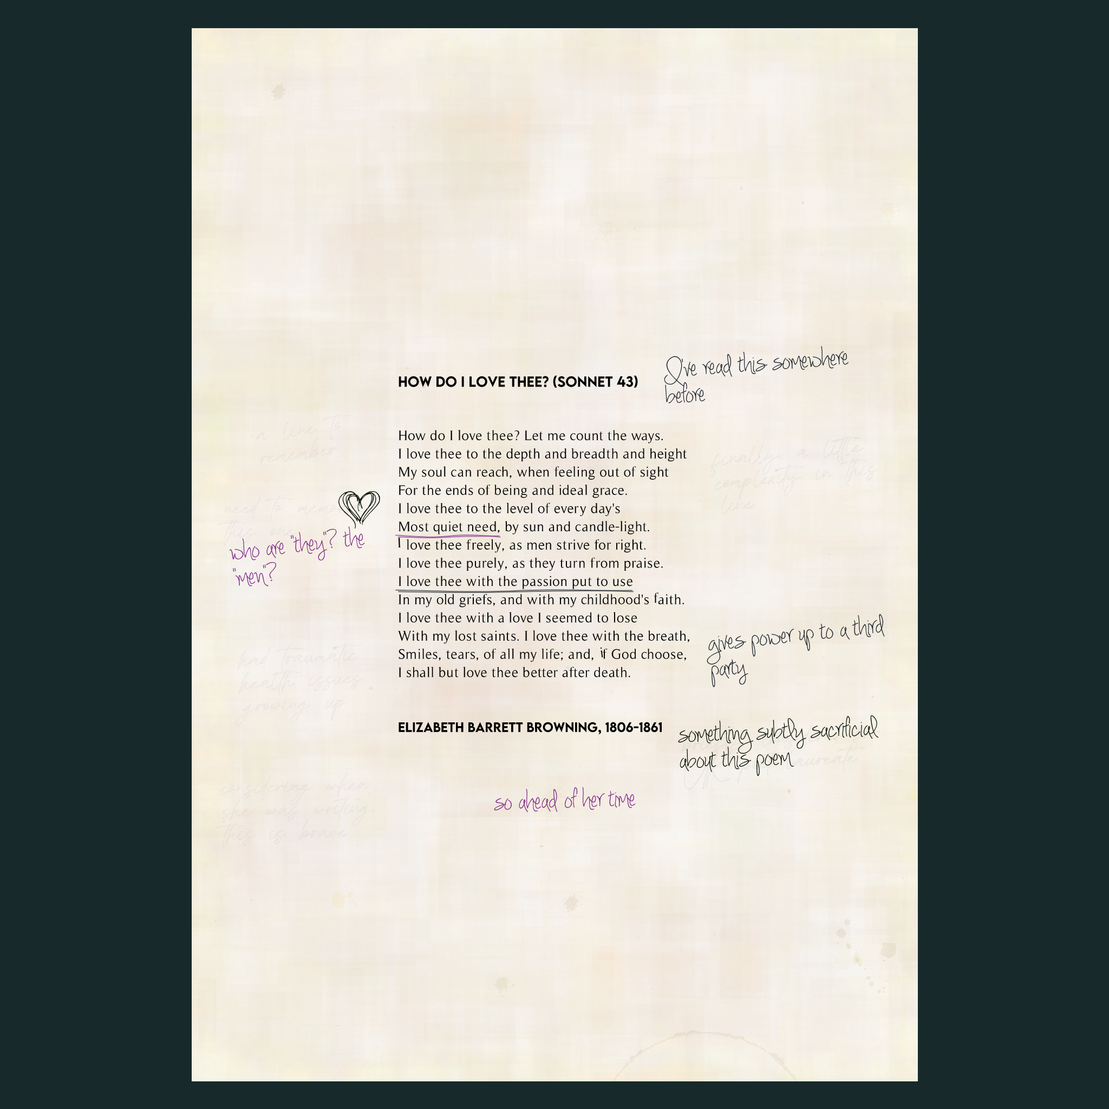 I've read this somewhere
before
HOW DO I LOVE THEE? (SONNET 43)
How do I love thee? Let me count the ways.
I love thee to the depth and breadth and height
My soul can reach, when feeling out of sight
For the ends of being and ideal grace.
I love thee to the level of every day's
Most quiet need, by sun and candle-light.
I love thee freely, as men strive for right.
I love thee purely, as they turn from praise.
I love thee with the passion put to use
In my old griefs, and with my childhood's faith.
I love thee with a love I seemed to lose
With my lost saints. I love thee with the breath,
Smiles, tears, of all my life; and, if God choose,
I shall but love thee better after death.
ELIZABETH BARRETT BROWNING, 1806-1861
who are "they"? the
"men"?
gives power up to a third
party
something subtly sacrificial
about this poem
so ahead of her time
remember
finally, a little
complexity in this
line
had traumatic
health issues
growing up
considering when
she was writing
this